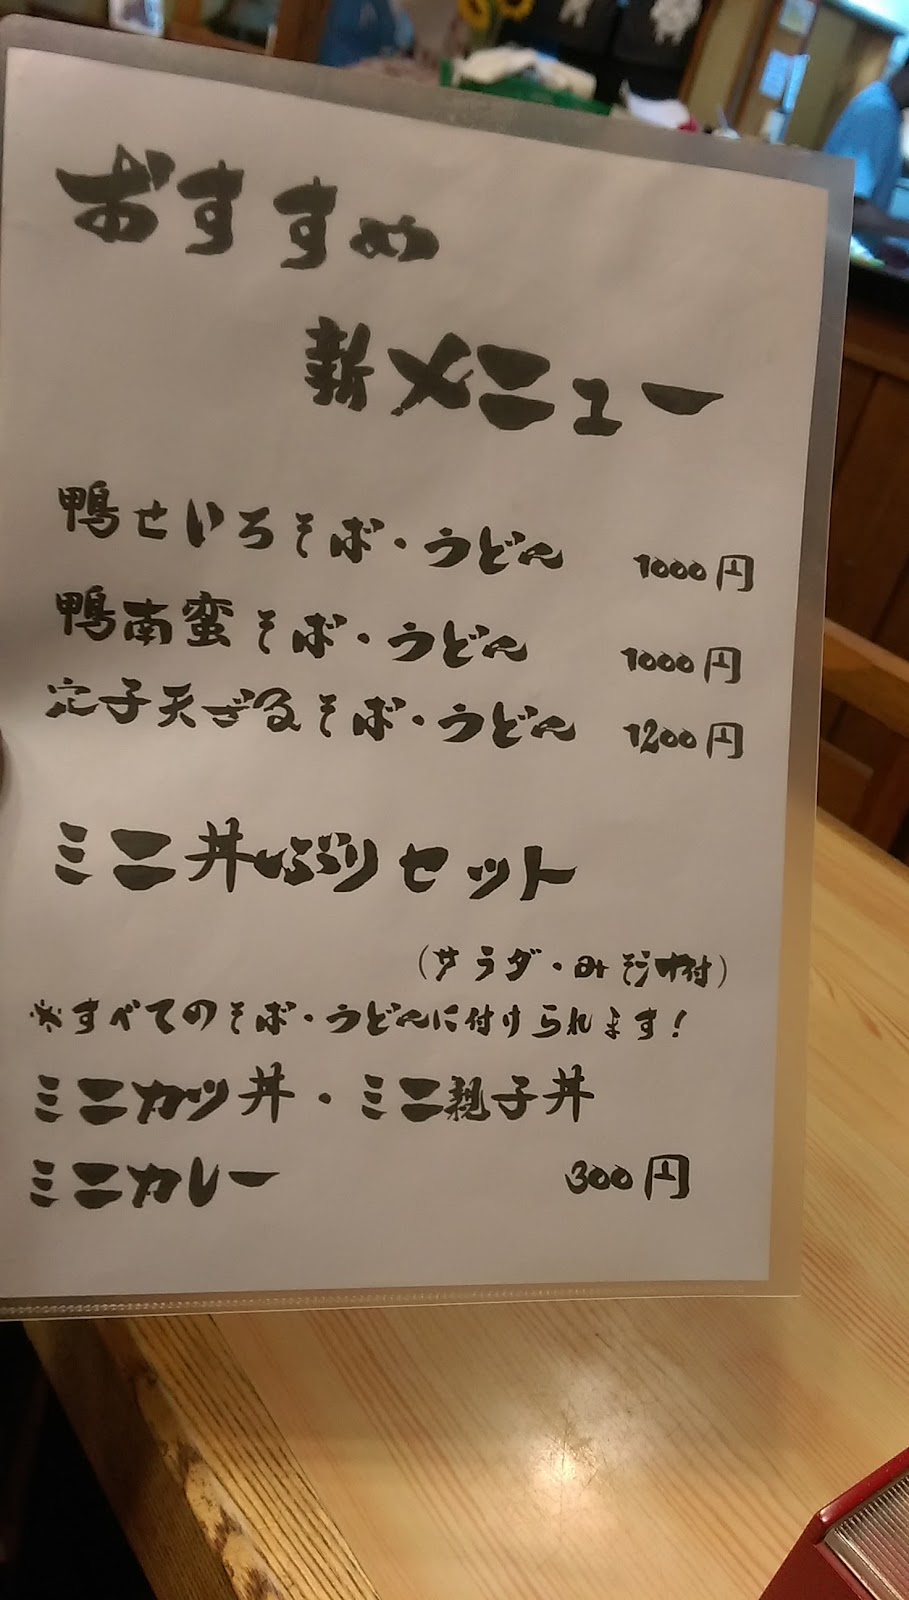 おすすめ
新メニュー
鴨せいろそば・うどん 1000円
鴨南蛮そば・うどん 1000円
穴子天ざるそば・うどん 1200円
ミニ丼ぶりセット
(サラダ・みそ汁付)
※すべてのそば・うどんに付けられます！
ミニカツ丼・ミニ親子丼
ミニカレー 300円